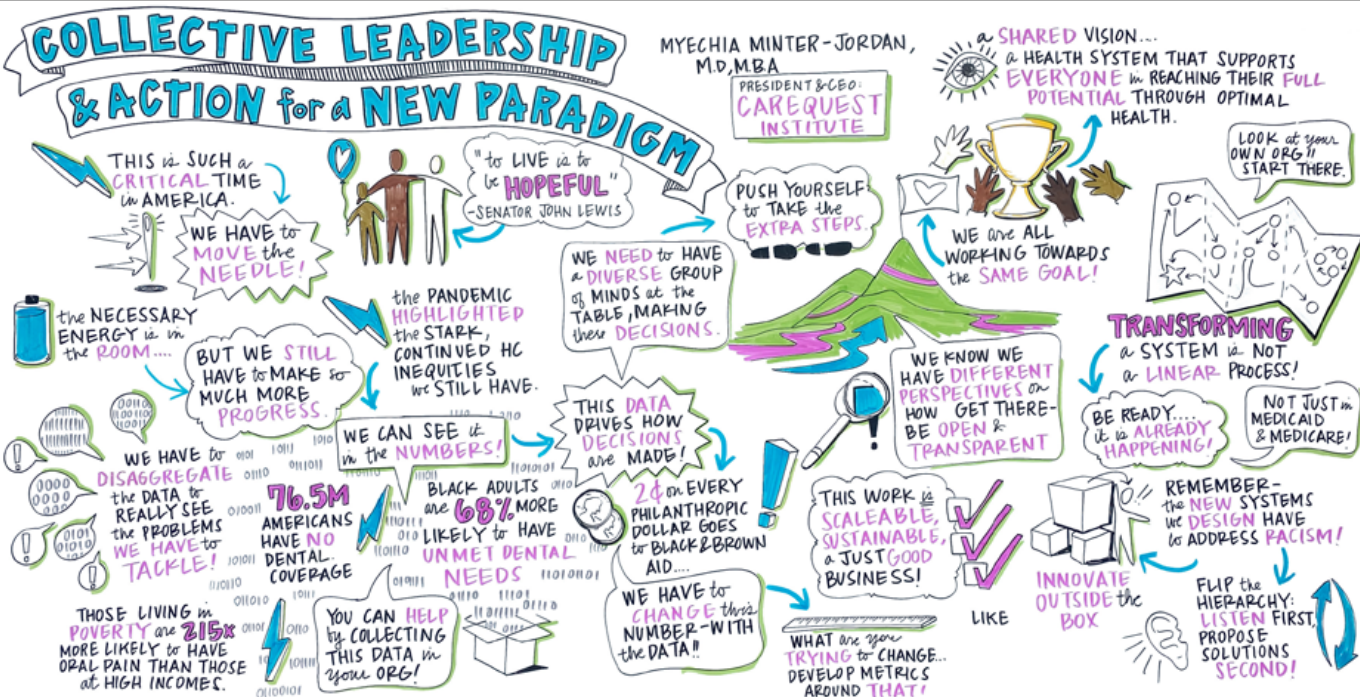 COLLECTIVE LEADERSHIP
& ACTION for a NEW PARADIGM
MYECHIA MINTER-JORDAN,
M.D., M.B.A
PRESIDENT & CEO:
CAREQUEST
INSTITUTE
a SHARED VISION...
a HEALTH SYSTEM THAT SUPPORTS
EVERYONE in REACHING THEIR FULL
POTENTIAL THROUGH OPTIMAL
HEALTH.
THIS is SUCH a
CRITICAL TIME
in AMERICA.
WE HAVE to
MOVE the
NEEDLE!
"to LIVE is to
be HOPEFUL"
-SENATOR JOHN LEWIS
PUSH YOURSELF
to TAKE the
EXTRA STEPS.
WE are ALL
WORKING TOWARDS
the SAME GOAL!
LOOK at your
OWN ORG!!
START THERE.
the NECESSARY
ENERGY is in
the ROOM....
BUT WE STILL
HAVE to MAKE so
MUCH MORE
PROGRESS.
the PANDEMIC
HIGHLIGHTED
the STARK,
CONTINUED HC
INEQUITIES
we STILL HAVE.
WE NEED to HAVE
a DIVERSE GROUP
of MINDS at the
TABLE, MAKING
these DECISIONS.
WE KNOW WE
HAVE DIFFERENT
PERSPECTIVES on
HOW GET THERE-
BE OPEN &
TRANSPARENT
TRANSFORMING
a SYSTEM is NOT
a LINEAR PROCESS!
BE READY....
it is ALREADY
HAPPENING!
NOT JUST in
MEDICAID
& MEDICARE!
WE HAVE to
DISAGGREGATE
the DATA to
REALLY SEE
the PROBLEMS
WE HAVE to
TACKLE!
WE CAN SEE it
in the NUMBERS!
76.5M
AMERICANS
HAVE NO
DENTAL
COVERAGE
BLACK ADULTS
are 68% MORE
LIKELY to HAVE
UNMET DENTAL
NEEDS
THIS DATA
DRIVES HOW
DECISIONS
are MADE!
2¢ on EVERY
PHILANTHROPIC
DOLLAR GOES
to BLACK & BROWN
AID....
THIS WORK is
SCALEABLE,
SUSTAINABLE,
a JUST GOOD
BUSINESS!
REMEMBER-
the NEW SYSTEMS
we DESIGN HAVE
to ADDRESS RACISM!
INNOVATE
OUTSIDE the
BOX
FLIP the
HIERARCHY:
LISTEN FIRST,
PROPOSE
SOLUTIONS
SECOND!
THOSE LIVING in
POVERTY are 215x
MORE LIKELY to HAVE
ORAL PAIN THAN THOSE
at HIGH INCOMES.
YOU CAN HELP
by COLLECTING
THIS DATA in
your ORG!
WE HAVE to
CHANGE this
NUMBER-WITH
the DATA!!
WHAT are you
TRYING to CHANGE...
DEVELOP METRICS
AROUND THAT!
LIKE